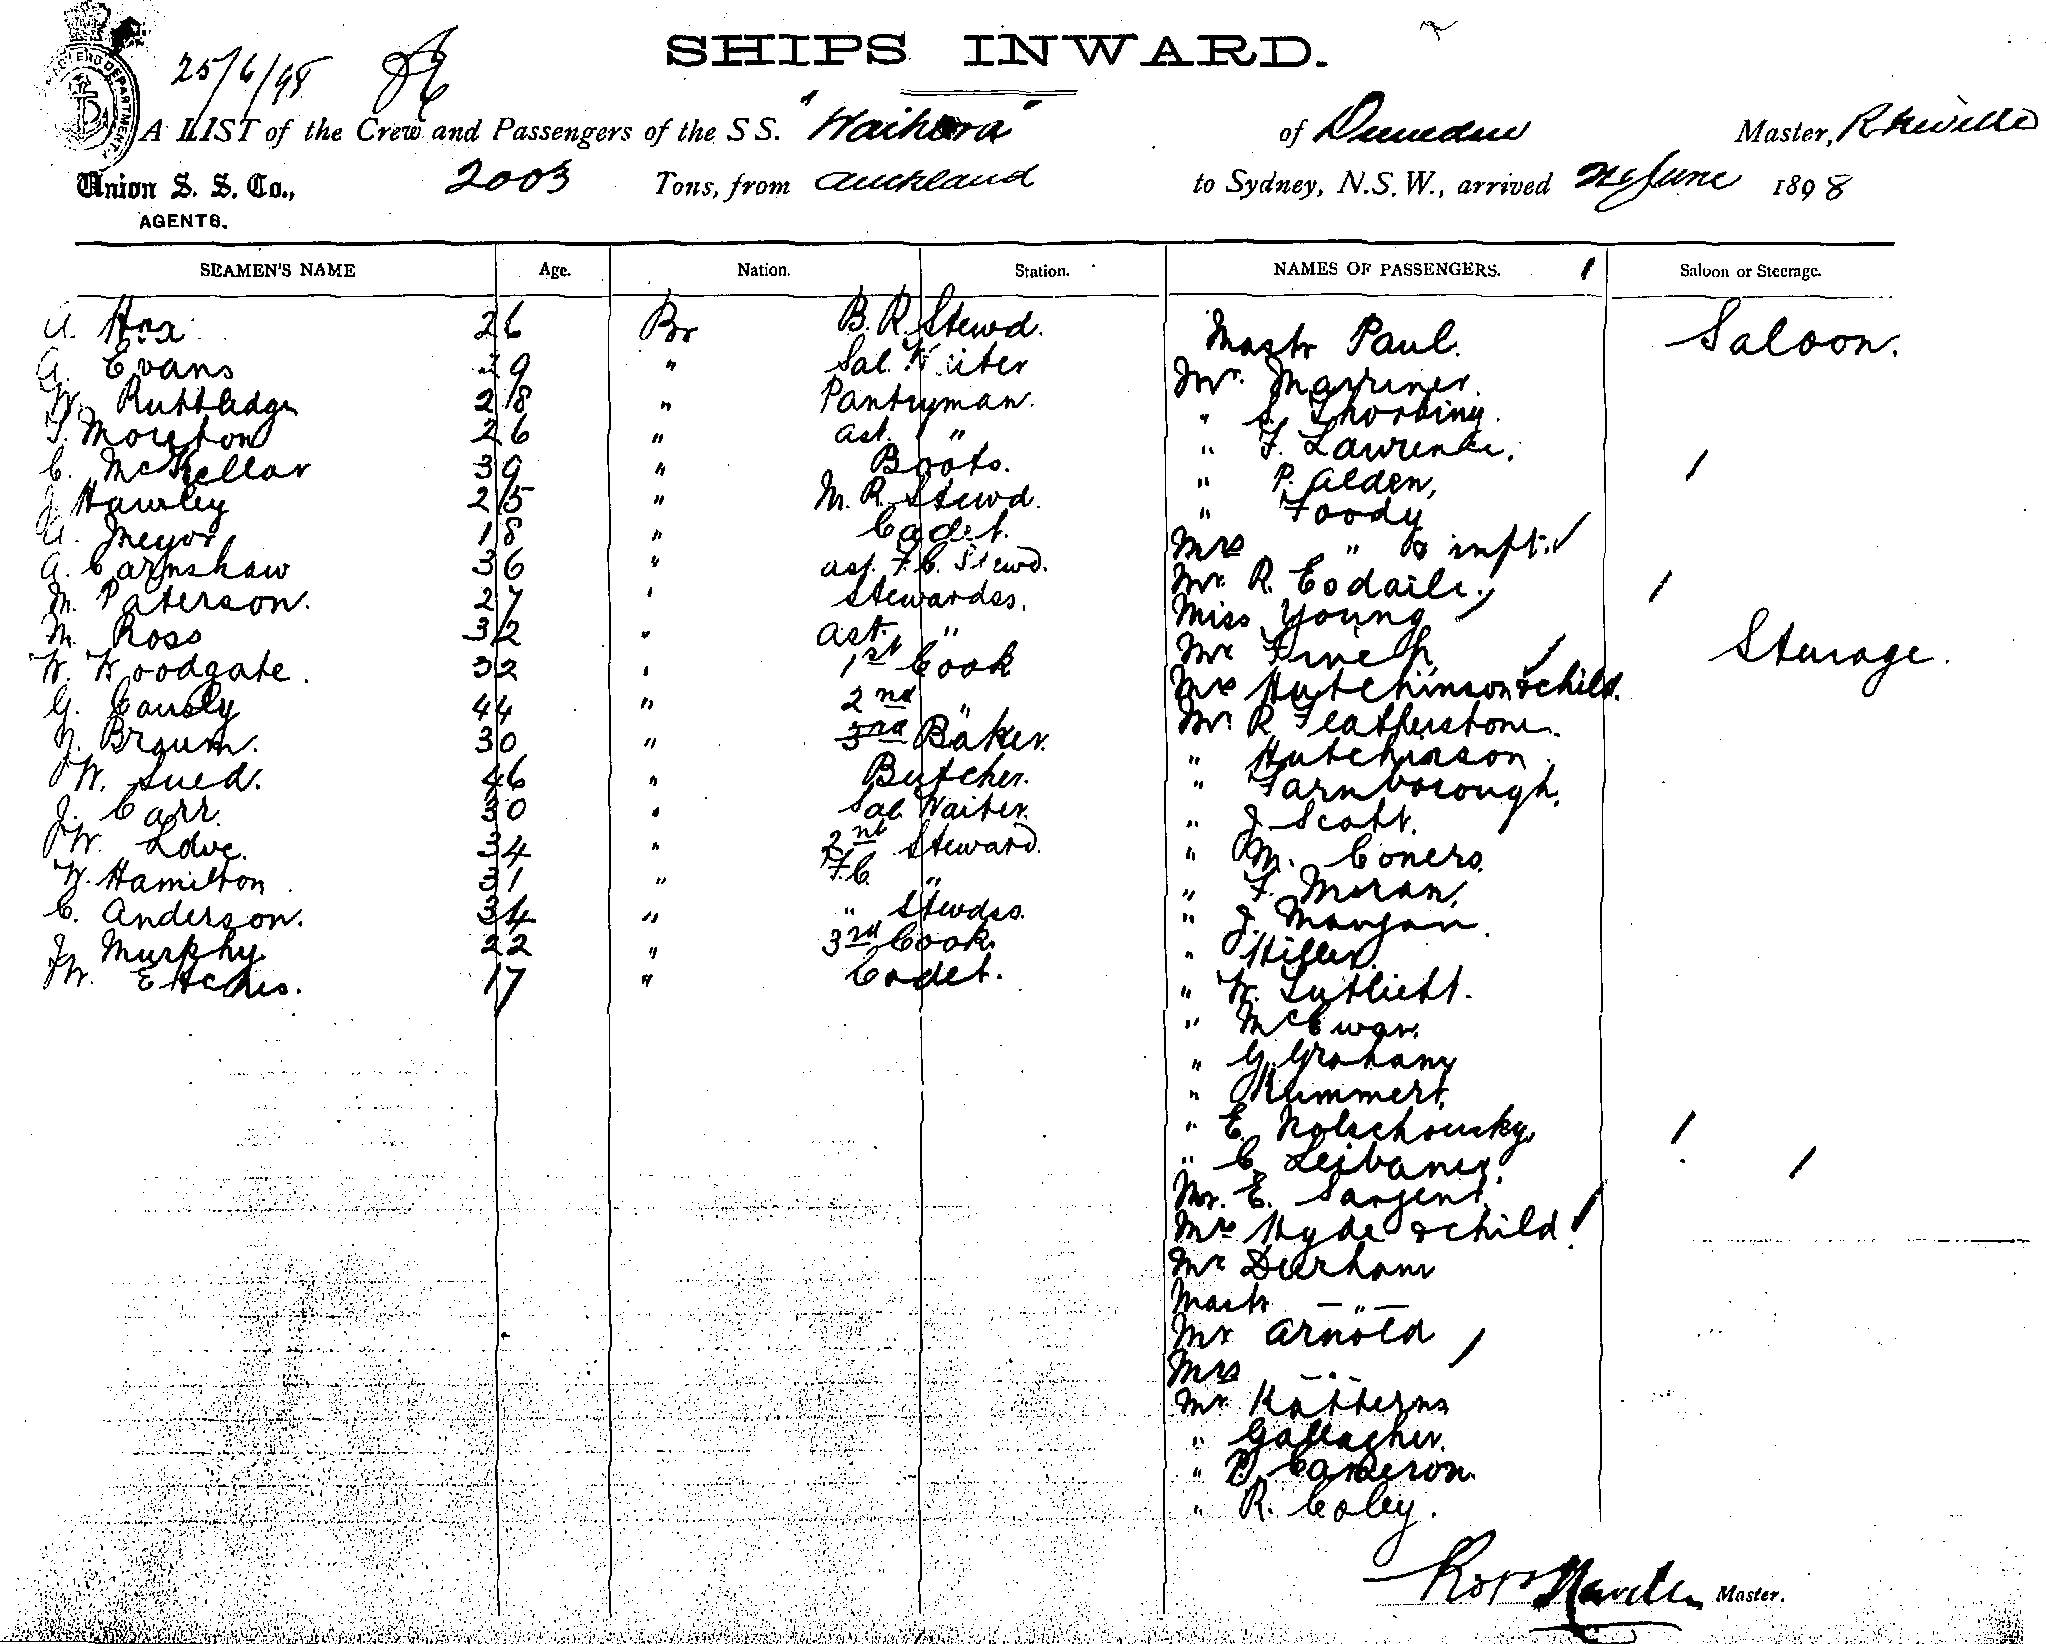 SHIPS INWARD.
25/6/98
A LIST of the Crew and Passengers of the SS. "Waihora" of Dunedin Master, R Neville
Union S. S. Co., 2003 Tons, from Auckland to Sydney, N.S.W., arrived June 1898
AGENTS.
SEAMEN'S NAME Age. Nation. Station. NAMES OF PASSENGERS. Saloon or Steerage.
26 Br B. R. Stewd. Mastr Paul. Saloon.
Evans 39 " Sal. Waiter Mr. Marriner.
W. Ruttledge 28 " Pantryman. "
Moreton 26 " Ast. " " F. Lawrence.
C. McKellar 39 " Boots. " P. Alden,
J. Hawley 25 " M. R. Stewd. " Foody
A. Meyor 18 " Cadet. Mrs " & inft.
A. Carnshaw 36 " ast. F. C. Stewd. Mr. R. Eodaile.
M. Paterson. 27 " Stewardss. Miss Young
M. Ross 32 " Ast. " Mr Steerage.
W. Woodgate. 32 " 1st Cook Mrs Hutchinson & child.
G. Causly 44 " 2nd " Mr. R. Featherstone.
Braum. 30 " Baker. " Hutchinson.
W. Sued. 46 " Butcher. " Farnborough.
J. Carr. 30 " Sal Waiter. " J. Scott.
W. Lowe. 34 " 2nd Steward. " M. Coners.
W. Hamilton 31 " F.C. " " F. Moran.
C. Anderson. 34 " " Stewdss. " J. Mangan.
J. Murphy 22 " 3rd Cook. " Hiller.
W. Etches. 17 " Cadet. " W. Sutlieff.
" McEwan.
" G. Graham
" Kummert.
" E. Nolschowsky.
" C.
Mr. E. Sargent.
Mrs Hyde & child
Mr Durham
Mastr — " —
Mr Arnold
Mrs — " —
Mr Katterns
" Gallagher.
" Cameron.
" R. Coley.
Ross Neville Master.